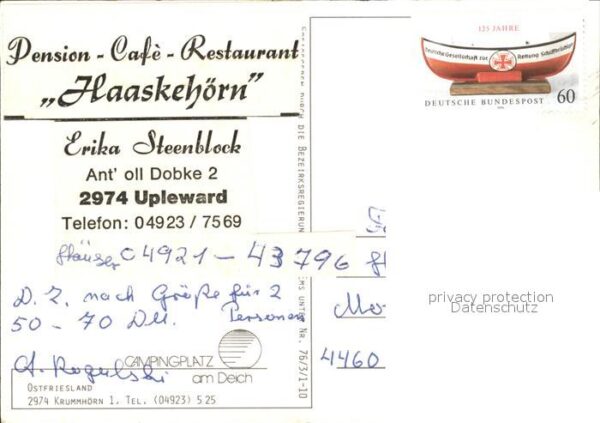 Pension - Cafè - Restaurant
„Haaskehörn"
Erika Steenblock
Ant' oll Dobke 2
2974 Upleward
Telefon: 04923 / 7569
04921 - 43796
D. Z. nach Größe für 2
50 - 70 DM. Personen
CAMPINGPLATZ
am Deich
OSTFRIESLAND
2974 KRUMMHÖRN 1. TEL. (04923) 5 25
DURCH DIE BEZIRKSREGIERUNG
UNTER NR. 76/3/1-10
125 JAHRE
Deutsche Gesellschaft zur Rettung Schiffbrüchiger
DEUTSCHE BUNDESPOST 60
Mo-
4460
privacy protection
Datenschutz